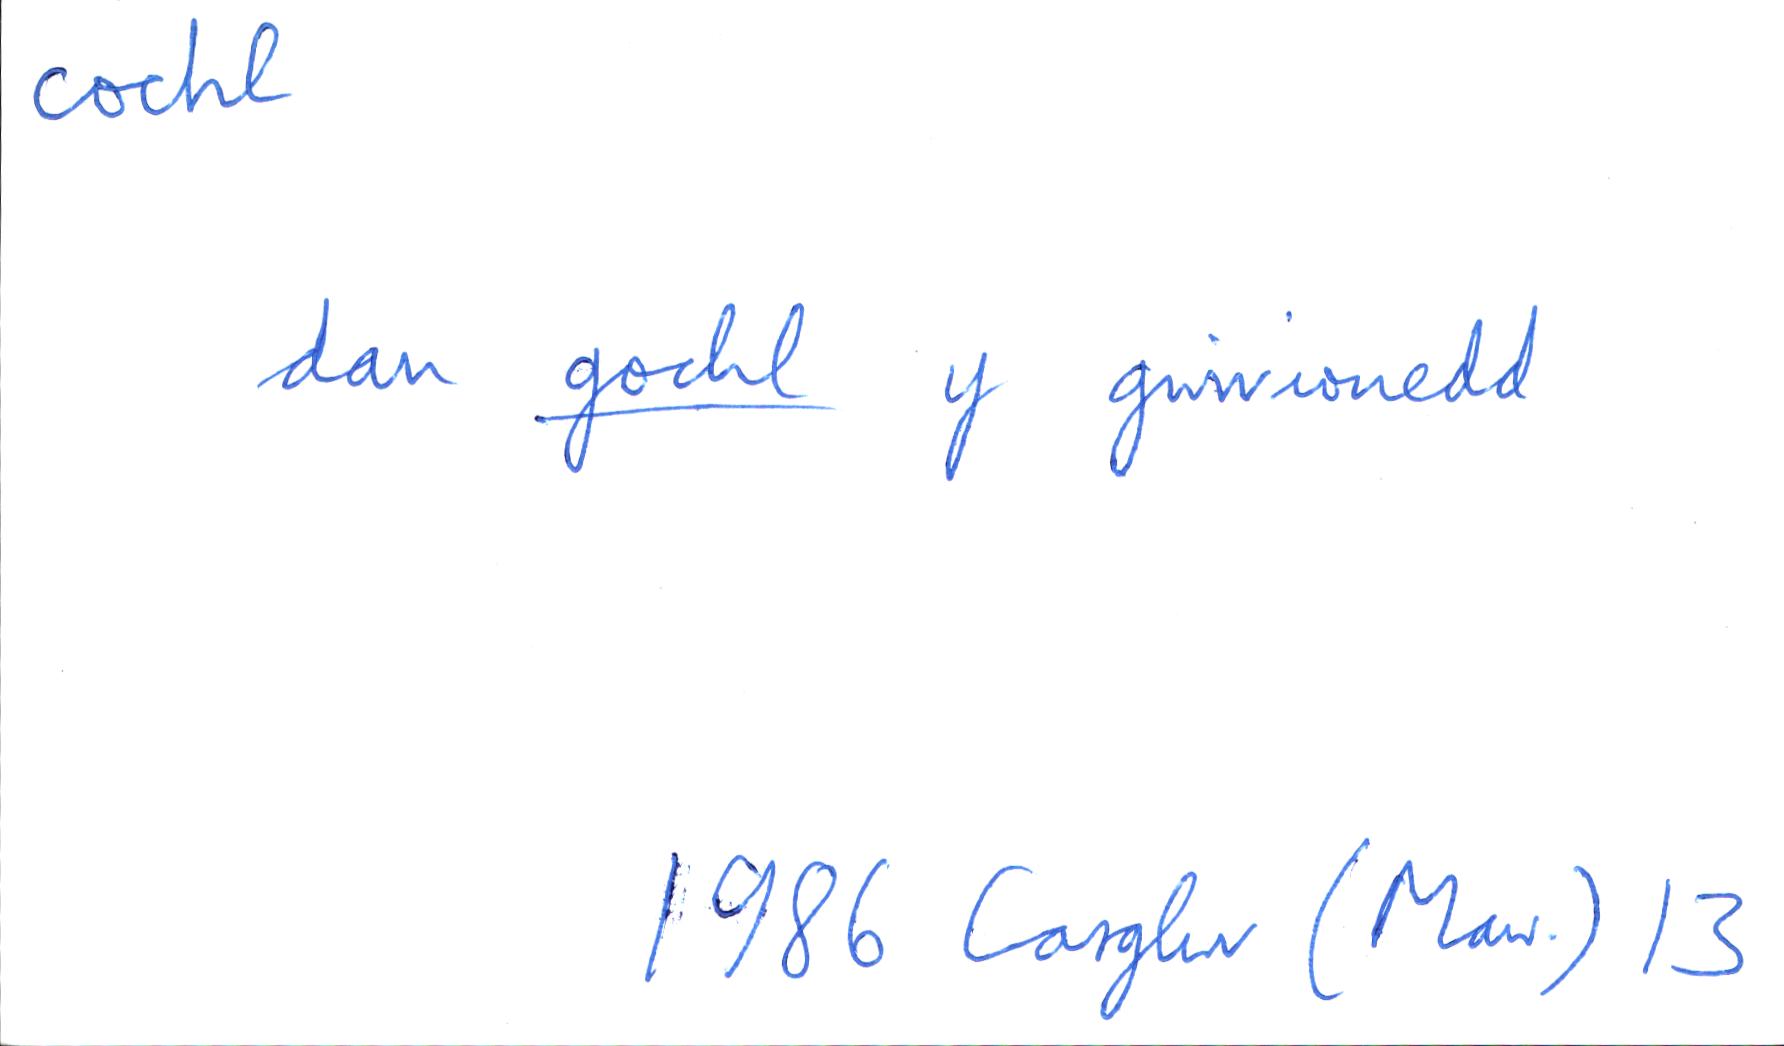 cochl
dan gochl y gwirionedd
1986 Casglwr (Maw.) 13